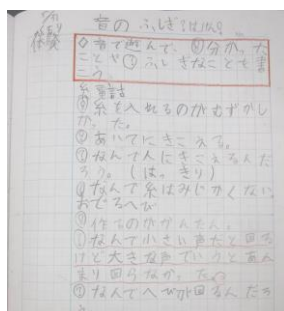 音のふしぎ
音で遊んで、分かったことや?ふしぎなことを書こう。
糸電話
糸を入れるのがむずかしかった。
あいてにきこえた。
?なんで人にきこえるんだろう。(はっきり)
なんで糸はみじかくない
おどるへび
作るのがかんたん。
なんで小さい声だと回るけど大きな声でいうとあんまり回らなかった。
?なんでへびが回るんだろ